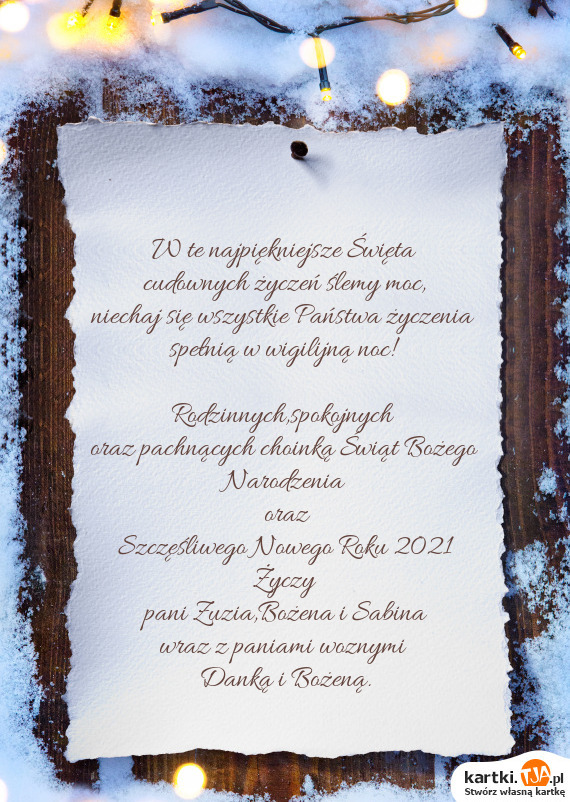 W te najpiękniejsze Święta
cudownych życzeń ślemy moc,
niechaj się wszystkie Państwa życzenia
spełnią w wigilijną noc!
Rodzinnych,spokojnych
oraz pachnących choinką Świąt Bożego
Narodzenia
oraz
Szczęśliwego Nowego Roku 2021
Życzy
pani Zuzia,Bożena i Sabina
wraz z paniami woznymi
Danką i Bożeną.
kartki.TJA.pl
Stwórz własną kartkę